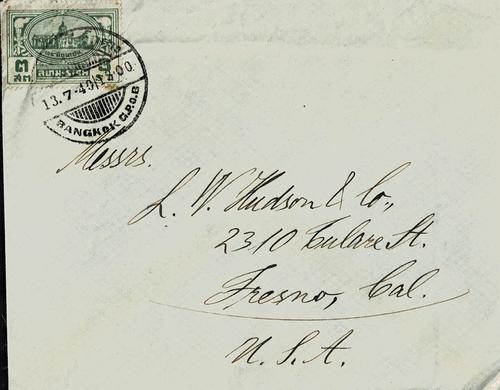 ๓
สต.
13.7-40
BANGKOK G.P.O.B
Messrs.
L. W. Hudson & Co.,
2310 Tulare St.
Fresno, Cal.
U. S. A.